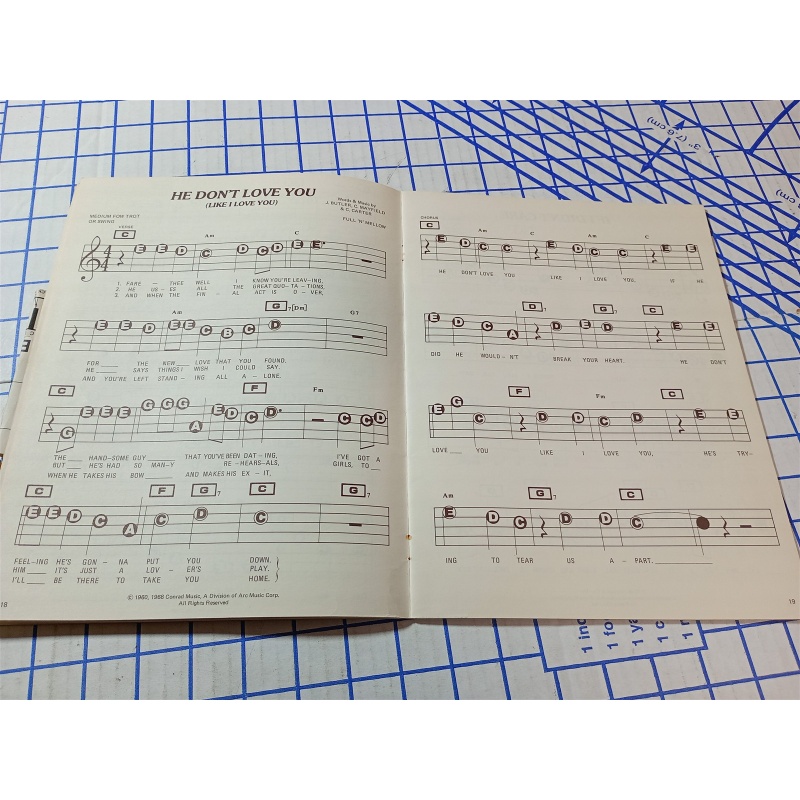 HE DON'T LOVE YOU
(LIKE I LOVE YOU)
Words & Music by
J. BUTLER, C. MAYFIELD
& C. CARTER
FULL 'N' MELLOW
MEDIUM FOX TROT
OR SWING
VERSE
C Am C
E E D D C D E E
1. FARE — THEE WELL I KNOW YOU'RE LEAV–ING,
2. HE US – ES ALL THE GREAT QUO–TA – TIONS,
3. AND WHEN THE FIN – AL ACT IS O – VER,
Am G7[Dm] G7
E E D E E C B C D
FOR ___ THE NEW ___ LOVE THAT YOU FOUND.
HE ___ SAYS THINGS I WISH I COULD SAY.
AND YOU'RE LEFT STAND – ING ALL A – LONE.
C F Fm
G E E E G G G A E D C D C C D
THE ___ HAND–SOME GUY ___ THAT YOU'VE BEEN DAT – ING, I'VE GOT A
BUT ___ HE'S HAD SO MAN–Y RE – HEARS–ALS, GIRLS, TO ___
WHEN HE TAKES HIS BOW ___ AND MAKES HIS EX – IT,
C F G7 C G7
E E D C A C D C
FEEL–ING HE'S GON – NA PUT YOU DOWN.
HIM ___ IT'S JUST A LOV – ER'S PLAY.
I'LL ___ BE THERE TO TAKE YOU HOME.
© 1960, 1966 Conrad Music, A Division of Arc Music Corp.
All Rights Reserved
18
CHORUS
C Am C Am C
E D C C E D C C E E
HE DON'T LOVE YOU LIKE I LOVE YOU. IF HE
Am D7 G7 C
E D C A E D E E
DID HE WOULD – N'T BREAK YOUR HEART. HE DON'T
C F Fm C
E G C D D C D E E
LOVE ___ YOU LIKE I LOVE YOU, HE'S TRY–
Am G7 C
E D C D D C
ING TO TEAR US A – PART.
19
3" (7.6 cm)
1 in
1 fo
1 ya
1 c
1